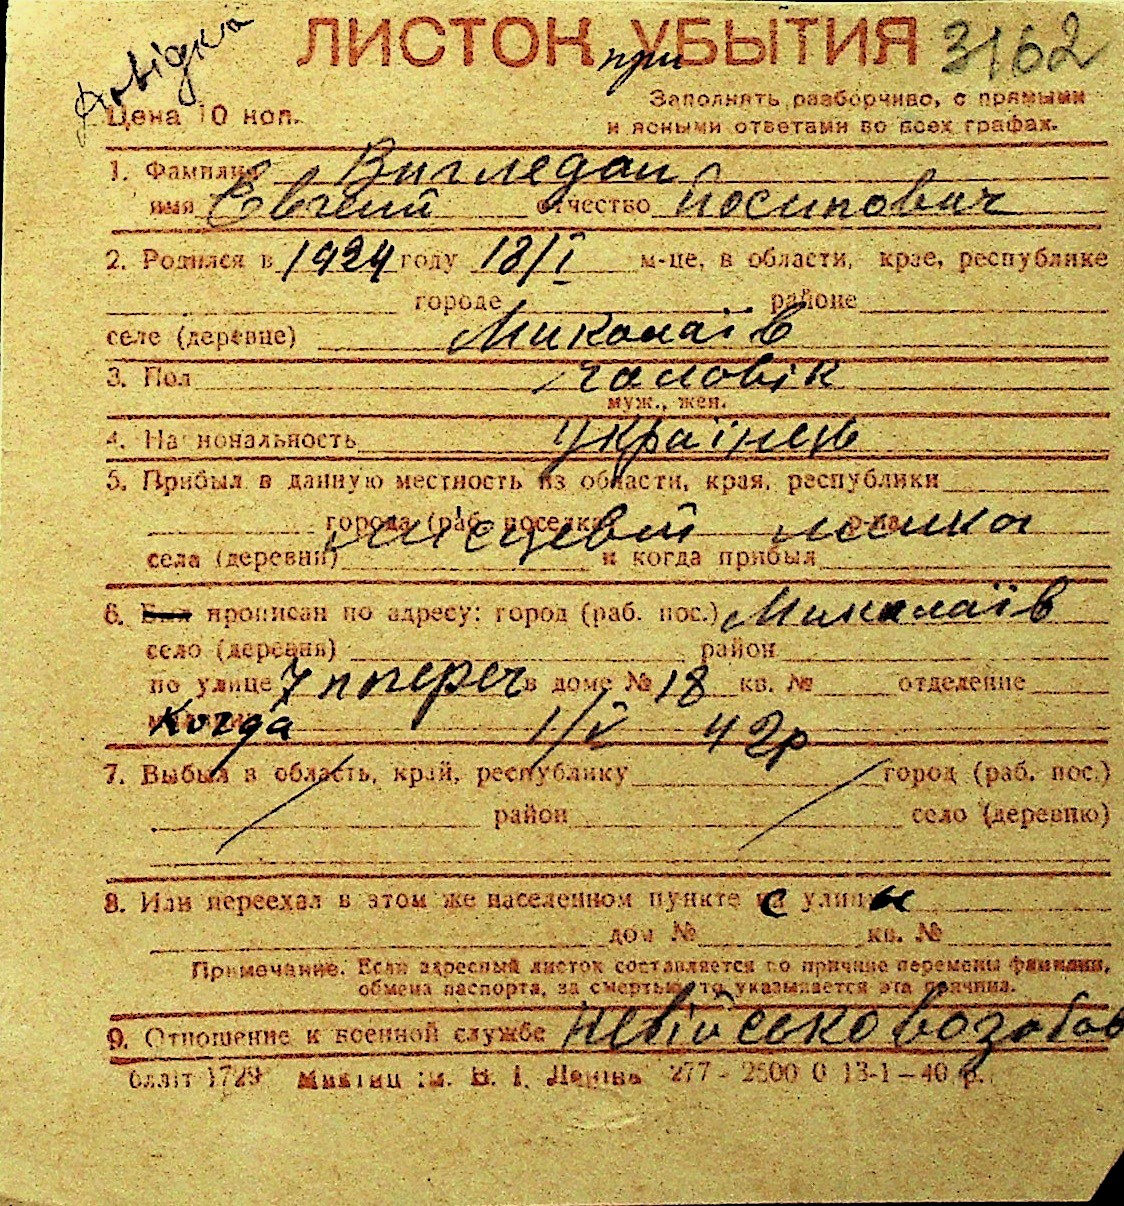 Довідка
ЛИСТОК при УБЫТИЯ 3162
Цена 10 коп.
Заполнять разборчиво, с прямыми
и ясными ответами во всех графах.
1. Фамилия Вигледан
имя Євгений отчество Йосипович
2. Родился в 1924 году 18/I м-це, в области, крае, республике
городе районе
селе (деревне) Миколаїв
3. Пол чаловік
муж., жен.
4. Национальность українець
5. Прибыл в данную местность из области, края, республики
города (раб. поселка) р-на
місцевий
села (деревни) и когда прибыл
6. Был прописан по адресу: город (раб. пос.) Миколаїв
село (деревня) район
по улице 7 попереч в доме № 18 кв. № отделение
Когда 1/V 42р
7. Выбыл в область, край, республику город (раб. пос.)
район село (деревню)
8. Или переехал в этом же населенном пункте с улицы
дом № кв. №
Примечание. Если адресный листок составляется по причине перемены фамилии,
обмена паспорта, за смертью, то указывается эта причина.
9. Отношение к военной службе невійськовозобов
облліт 1729 Миктип ім. В. І. Леніна 277 - 2500 0 13-1-40 р.